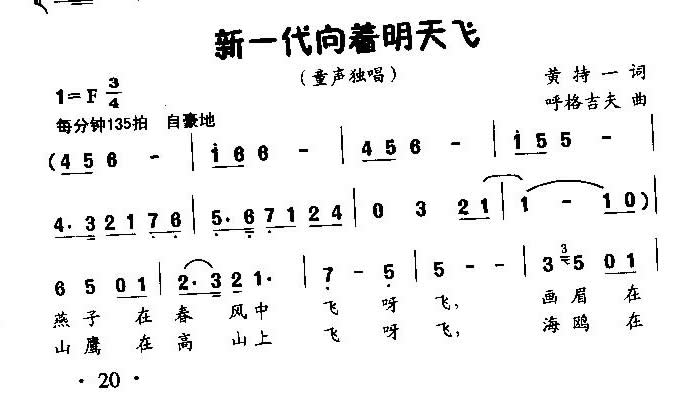 新一代向着明天飞
(童声独唱)
1=F 3/4
黄持一 词
每分钟135拍 自豪地
呼格吉夫 曲
(4 5 6 - | i 6 6 - | 4 5 6 - | i 5 5 - |
4· 3 2 1 7 6 | 5· 6 7 1 2 4 | 0 3 2 1 | 1 - 1 0) |
6 5 0 1 | 2· 3 2 1· | 7 - 5 | 5 - - | 3 3 5 0 1 |
燕子 在春 风中 飞 呀 飞, 画眉 在
山鹰 在高 山上 飞 呀 飞, 海鸥 在
· 20 ·